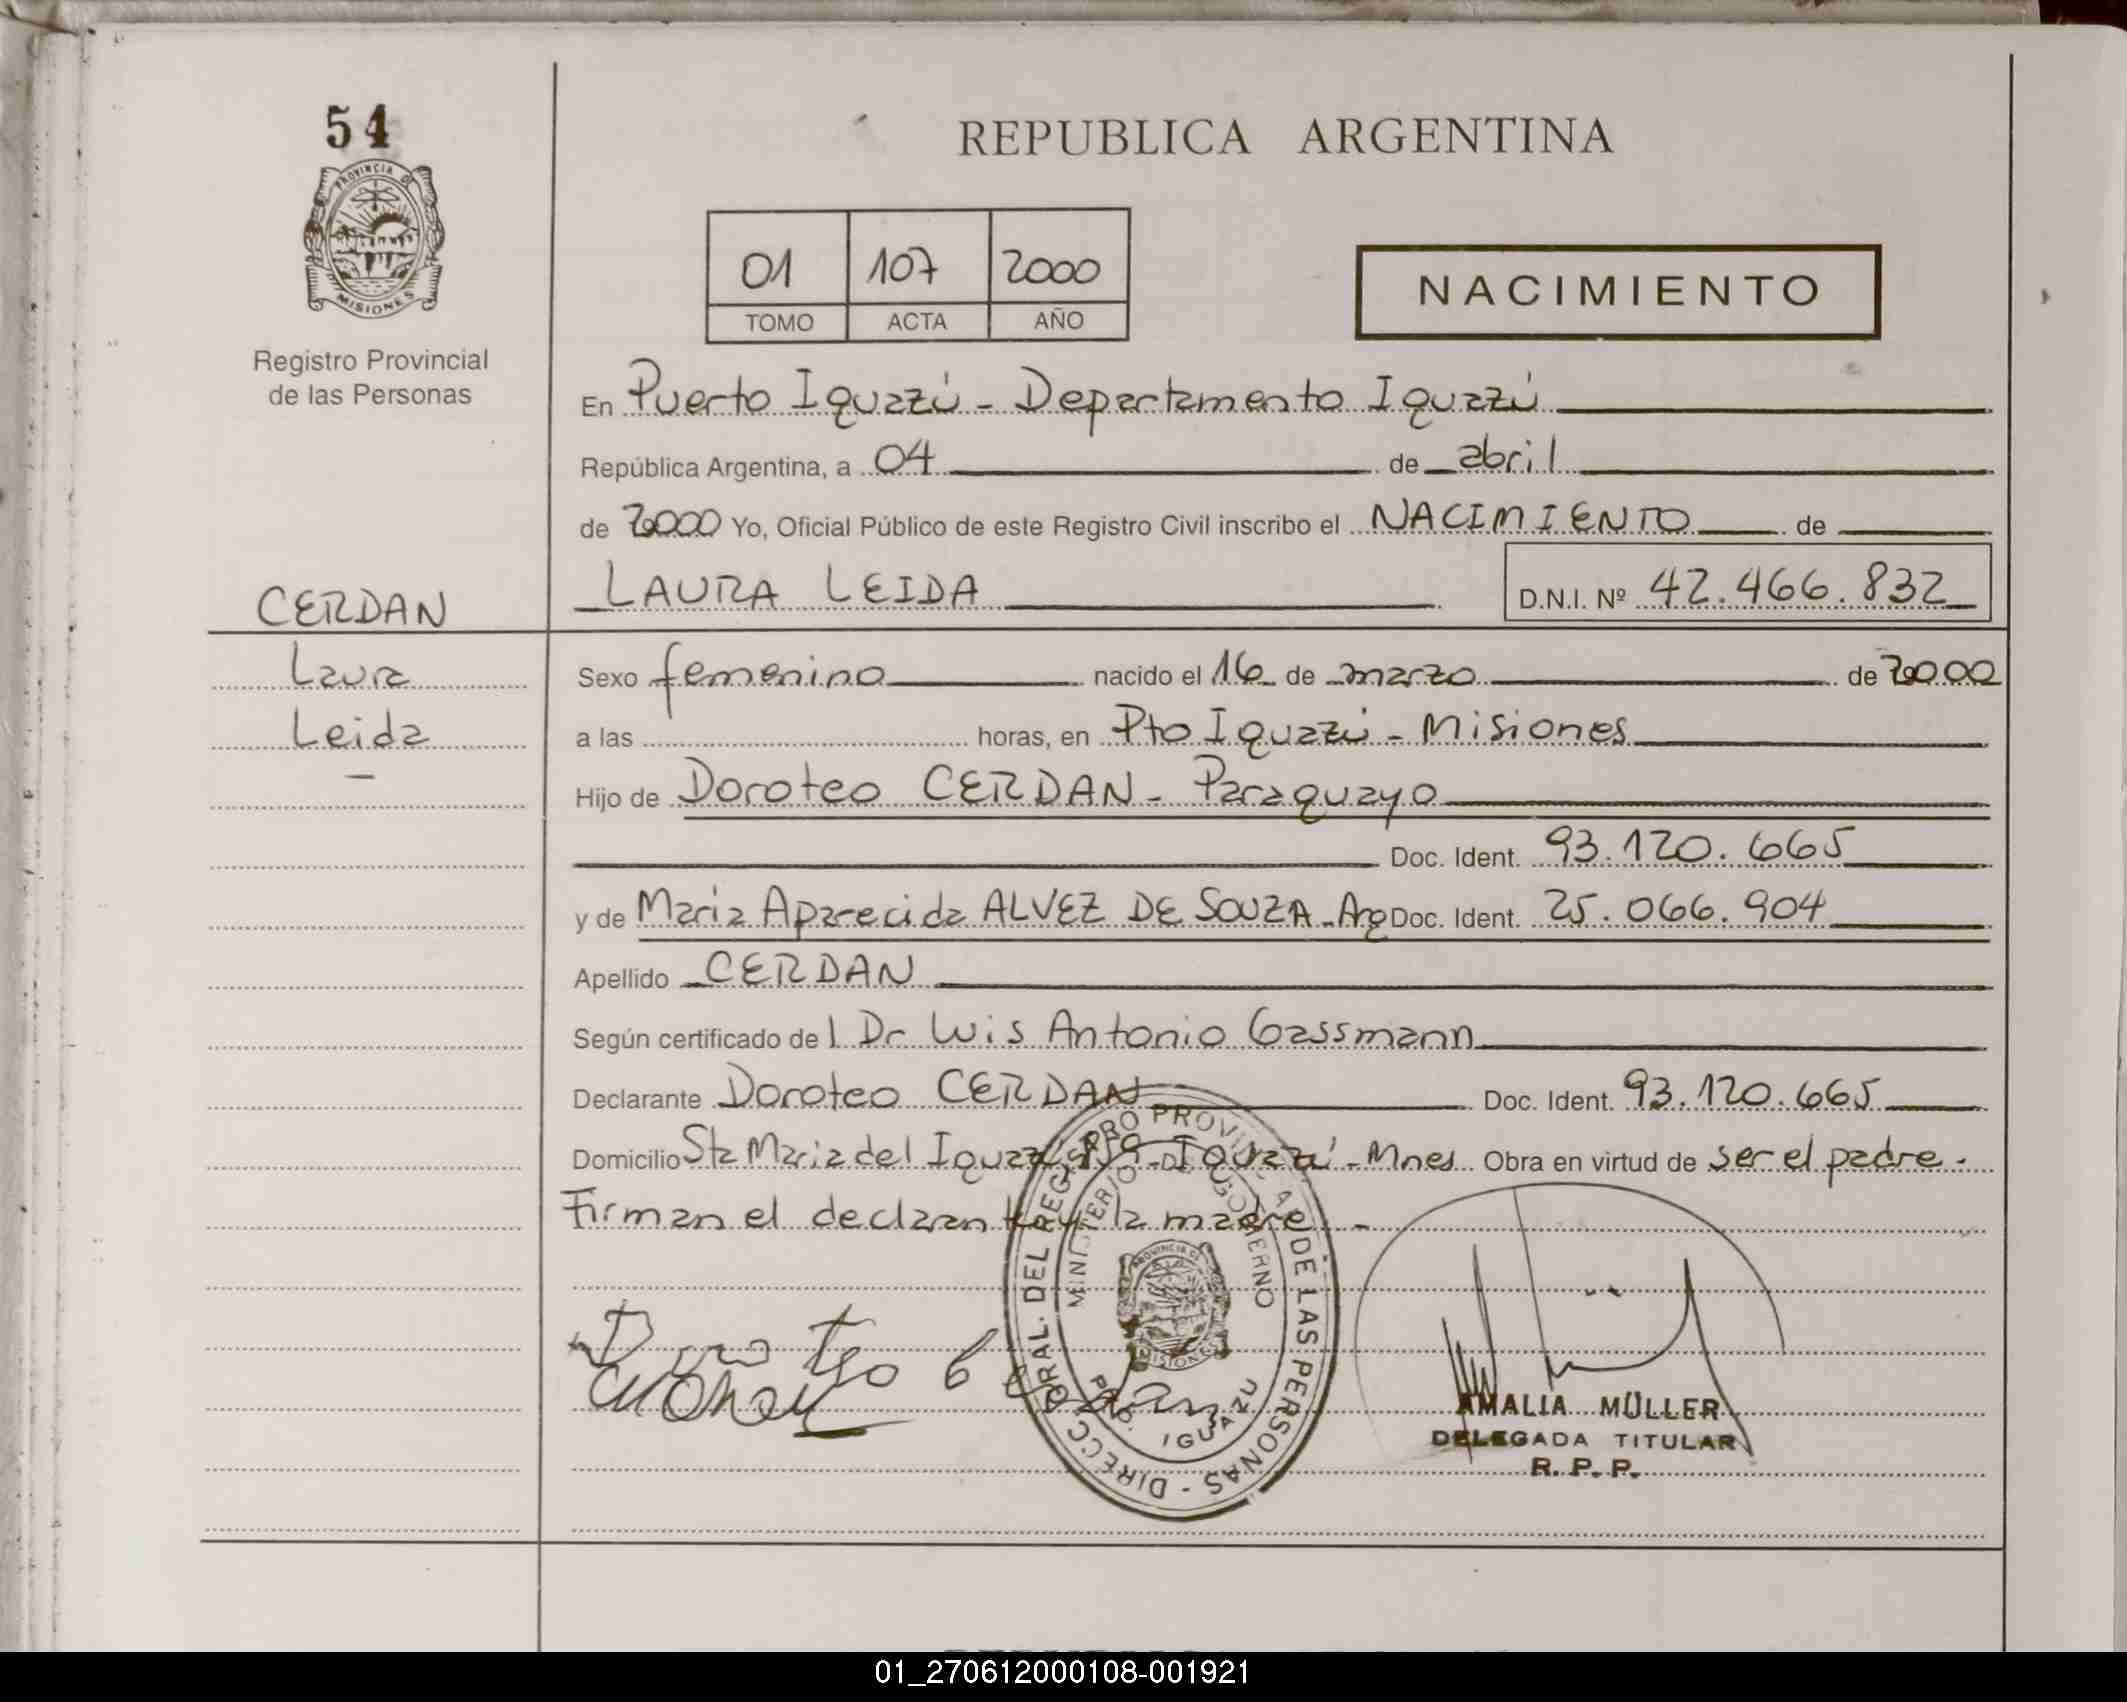 54
PROVINCIA DE
MISIONES
Registro Provincial
de las Personas
REPUBLICA ARGENTINA
01 107 2000
TOMO ACTA AÑO
NACIMIENTO
En Puerto Iguazú - Departamento Iguazú
República Argentina, a 04 de abril
de 2000 Yo, Oficial Público de este Registro Civil inscribo el NACIMIENTO de
CERDAN LAURA LEIDA D.N.I. Nº 42.466.832
Laura Sexo femenino nacido el 16 de marzo de 2000
Leida a las horas, en Pto Iguazú - Misiones
Hijo de Doroteo CERDAN - Paraguayo
Doc. Ident. 93.120.665
y de Maria Aparecida ALVEZ DE SOUZA - Arg Doc. Ident. 25.066.904
Apellido CERDAN
Según certificado de l Dr Luis Antonio Gassmann
Declarante Doroteo CERDAN Doc. Ident. 93.120.665
Domicilio Sta Maria del Iguazú - Iguazú - Mnes Obra en virtud de ser el padre.
Firman el declarante y la madre. -
Doroteo Cerdan
DIRECC. GRAL. DEL REGISTRO PROVINCIAL DE LAS PERSONAS -
MINISTERIO DE GOBIERNO
PROVINCIA DE
MISIONES
PTO. IGUAZU
AMALIA MÜLLER
DELEGADA TITULAR
R. P. P.
01_270612000108-001921